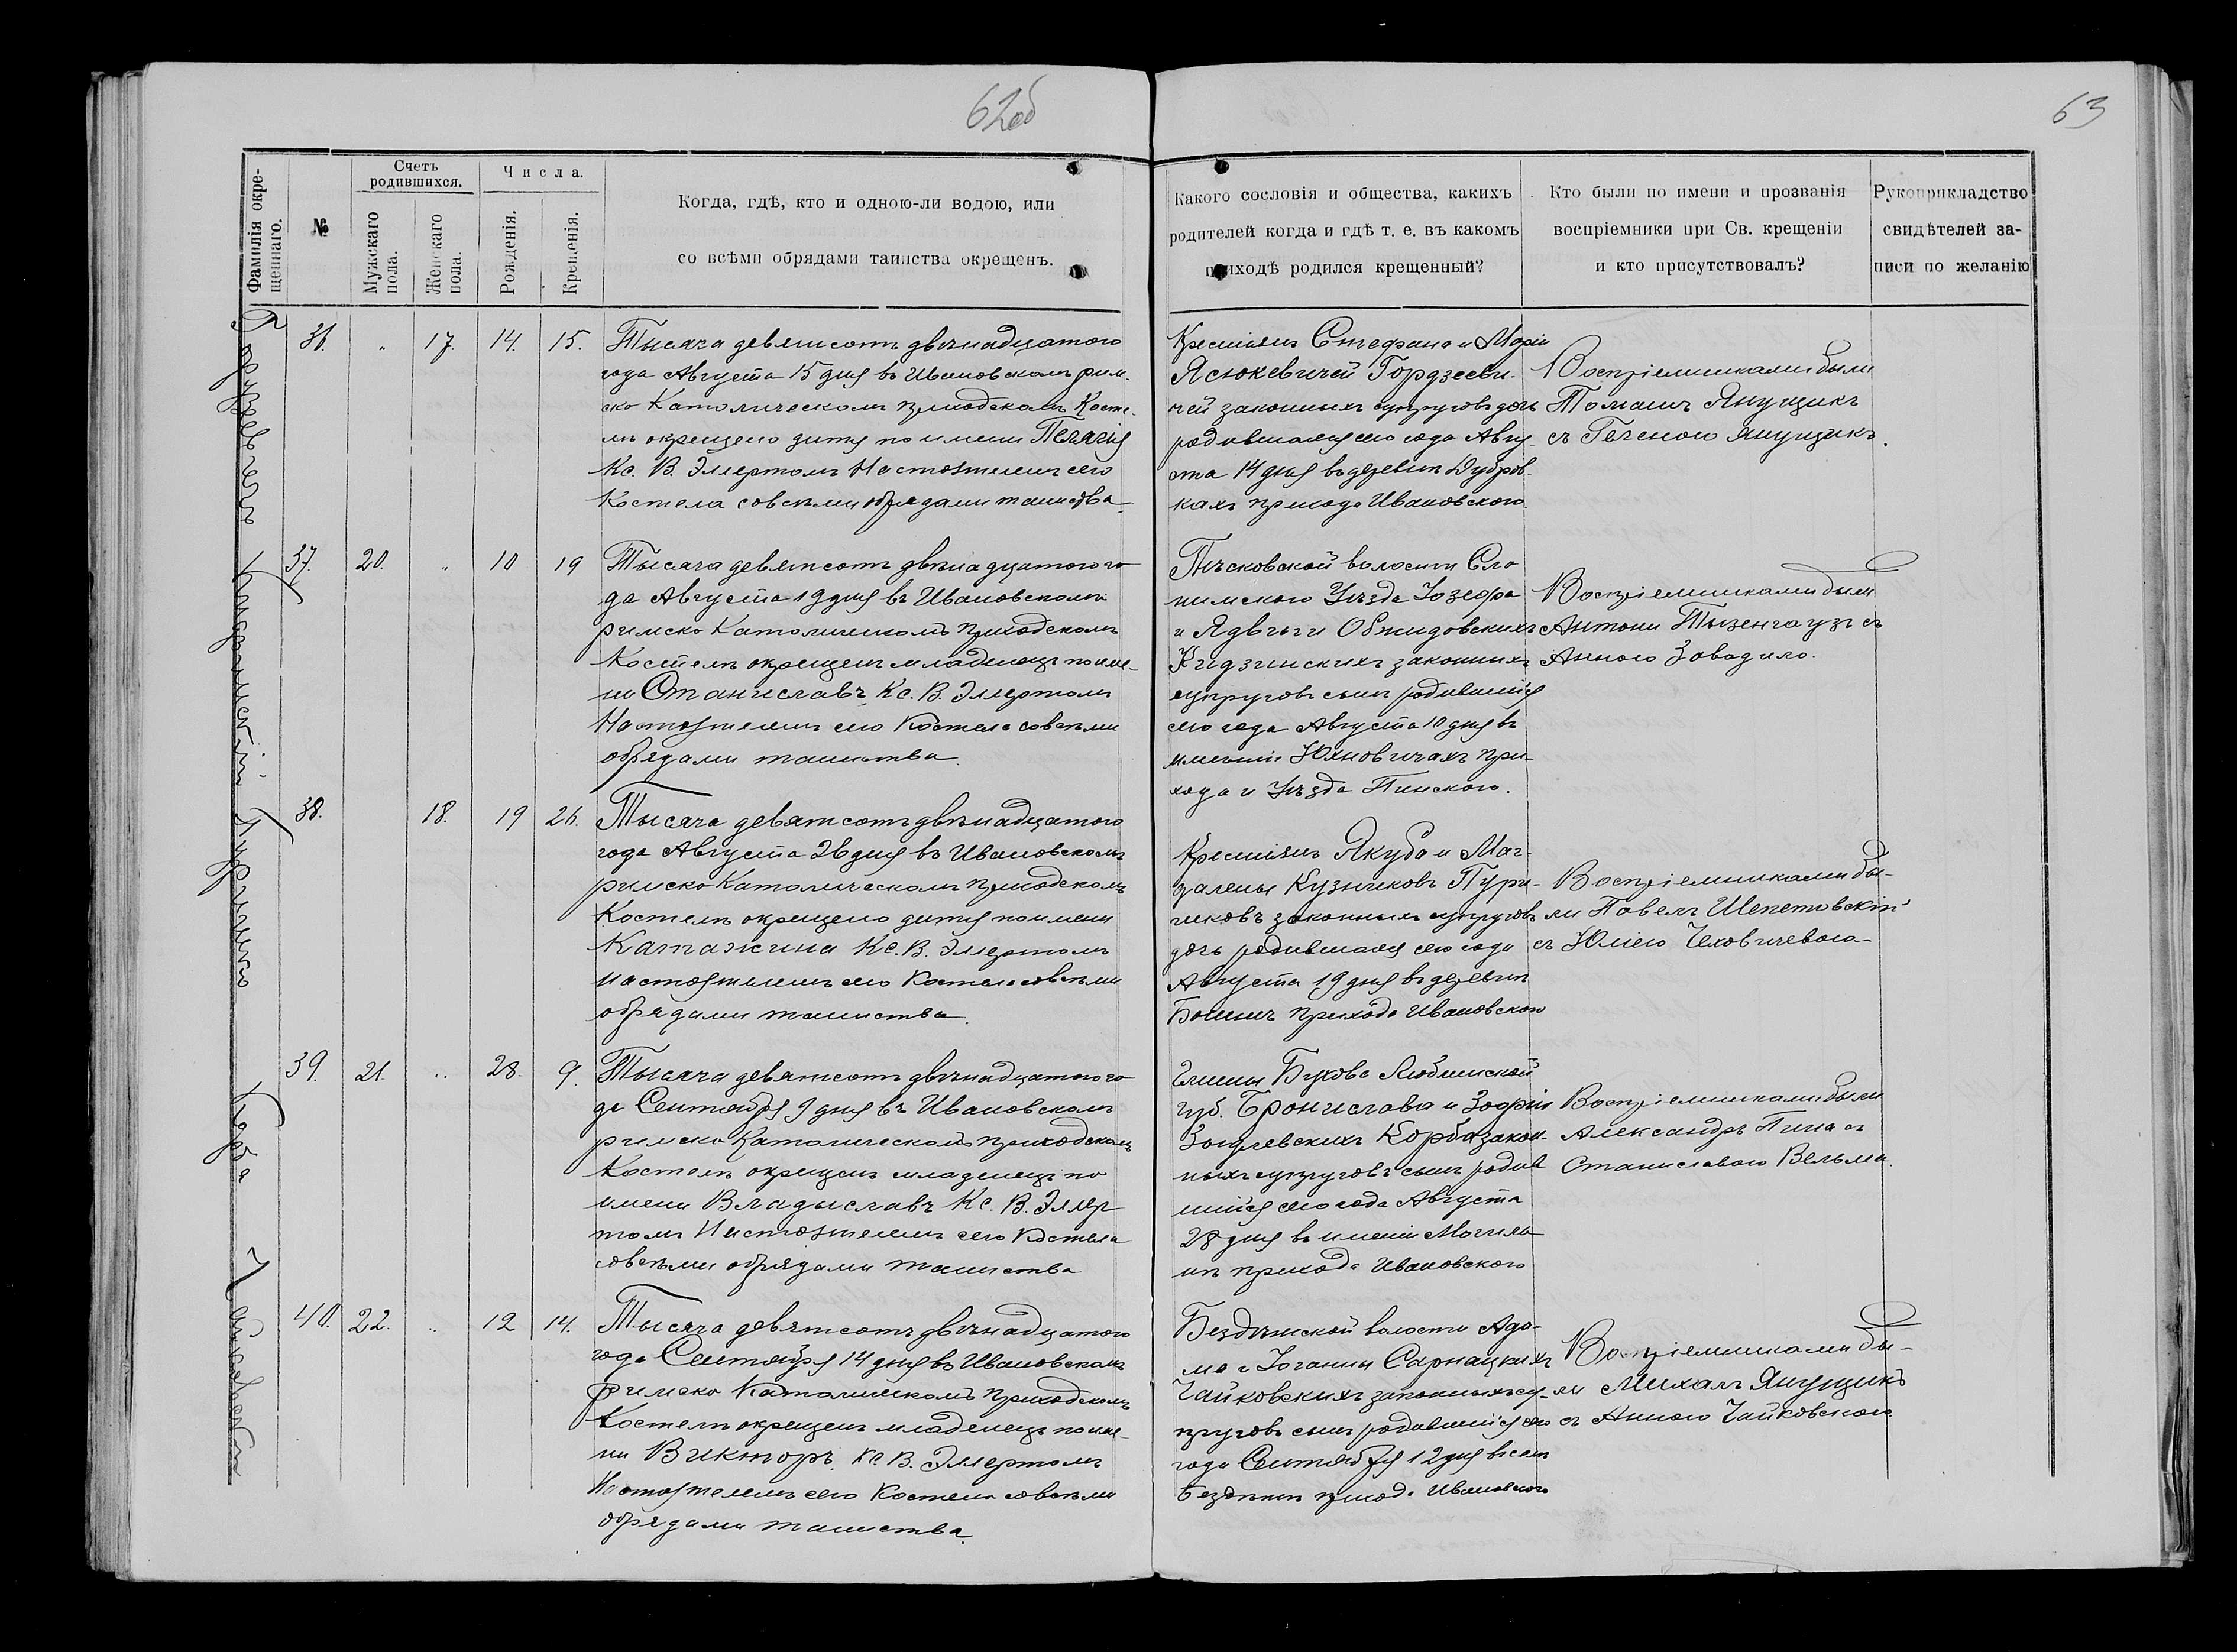 62об
63
Фамилія окре-
щеннаго.
№
Счетъ
родившихся.
Мужскаго
пола.
Женскаго
пола.
Числа.
Рожденія.
Крещенія.
Когда, гдѣ, кто и одною-ли водою, или
со всѣми обрядами таинства окрещенъ.
Какого сословія и общества, какихъ
родителей когда и гдѣ т. е. въ какомъ
приходѣ родился крещенный?
Кто были по имени и прозванія
воспріемники при Св. крещеніи
и кто присутствовалъ?
Рукоприкладство
свидѣтелей за-
писи по желанію
36. " 17. 14. 15.
Тысяча девятсотъ двѣнадцатого
года Августа 15 дня въ Ивановскомъ рим-
ско Католическомъ приходскомъ Косте-
лѣ окрещено дитя по имени Пелягія
Кс. В. Эмертомъ Настоятелемъ сего
Костела со всѣми обрядами таинства.
Крестіянъ Стефана и Маріи
Ясюкевичей Гордзееви-
чей законныхъ супруговъ дочь
родившаяся сего года Авгу-
ста 14 дня въ деревнѣ Дубров-
кахъ прихода Ивановского
Воспріемниками были
Томашъ Янущикъ
съ Геленою Янущикъ.
37. 20. " 10 19
Тысяча девятсотъ двѣнадцатого го-
да Августа 19 дня въ Ивановскомъ
римско Католическомъ приходскомъ
Костелѣ окрещенъ младенецъ по име-
ни Станиславъ Кс. В. Эмертомъ
Настоятелемъ сего Костела со всѣми
обрядами таинства.
Пѣсковской волости Сло
нимского Уѣзда Іозефа
и Ядвиги Обжидовскихъ
законныхъ
супруговъ сынъ родившійся
сего года Августа 10 дня въ
имѣніи Юхновичахъ при-
хода и Уѣзда Пинского.
Воспріемниками были
Антони Тызенгаузъ съ
Анною Завадило.
38. 18. 19 26.
Тысяча девятсотъ двѣнадцатого
года Августа 26 дня въ Ивановскомъ
римско Католическомъ приходскомъ
Костелѣ окрещено дитя по имени
Катажина Кс. В. Эмертомъ
настоятелемъ сего Костела со всѣми
обрядами таинства.
Крестіянъ Якуба и Маг-
далены Кузьниковъ Пури-
чековъ законныхъ супруговъ
дочь родившаяся сего года
Августа 19 дня въ деревнѣ
прихода Ивановского
Воспріемниками бы-
ли Павелъ Шепетовскій
съ Юліею Чеховичевою
39. 21. " 28. 9.
Тысяча девятсотъ двѣнадцатого го-
да Сентября 9 дня въ Ивановскомъ
римско Католическомъ приходскомъ
Костелѣ окрещенъ младенецъ по
имени Владыславъ Кс. В. Эмер
томъ Настоятелемъ сего Костела
со всѣми обрядами таинства
Гмины Быхова Люблинской
губ. Бронислава и Зофіи
Корба закон-
ныхъ супруговъ сынъ родив
шийся сего года Августа
28 дня въ имѣніи Могиль-
нѣ прихода Ивановского
Воспріемниками были
Александръ Пина съ
Станиславою Вельма.
40. 22. " 12 14.
Тысяча девятсотъ двѣнадцатого
года Сентября 14 дня въ Ивановскомъ
римско Католическомъ приходскомъ
Костелѣ окрещенъ младенецъ по име-
ни Викторъ Кс. В. Эмертомъ
Настоятелемъ сего Костела со всѣми
обрядами таинства.
Бездѣжской волости Ада-
ма и Іоганны Сарнацкихъ
Чайковскихъ законныхъ су-
пруговъ сынъ родившійся сего
года Сентября 12 дня въ селѣ
прихода Ивановского
Воспріемниками бы-
ли Михалъ Янущикъ
съ Анною Чайковскою
Гордзеевичъ
Корба
Чайковскій